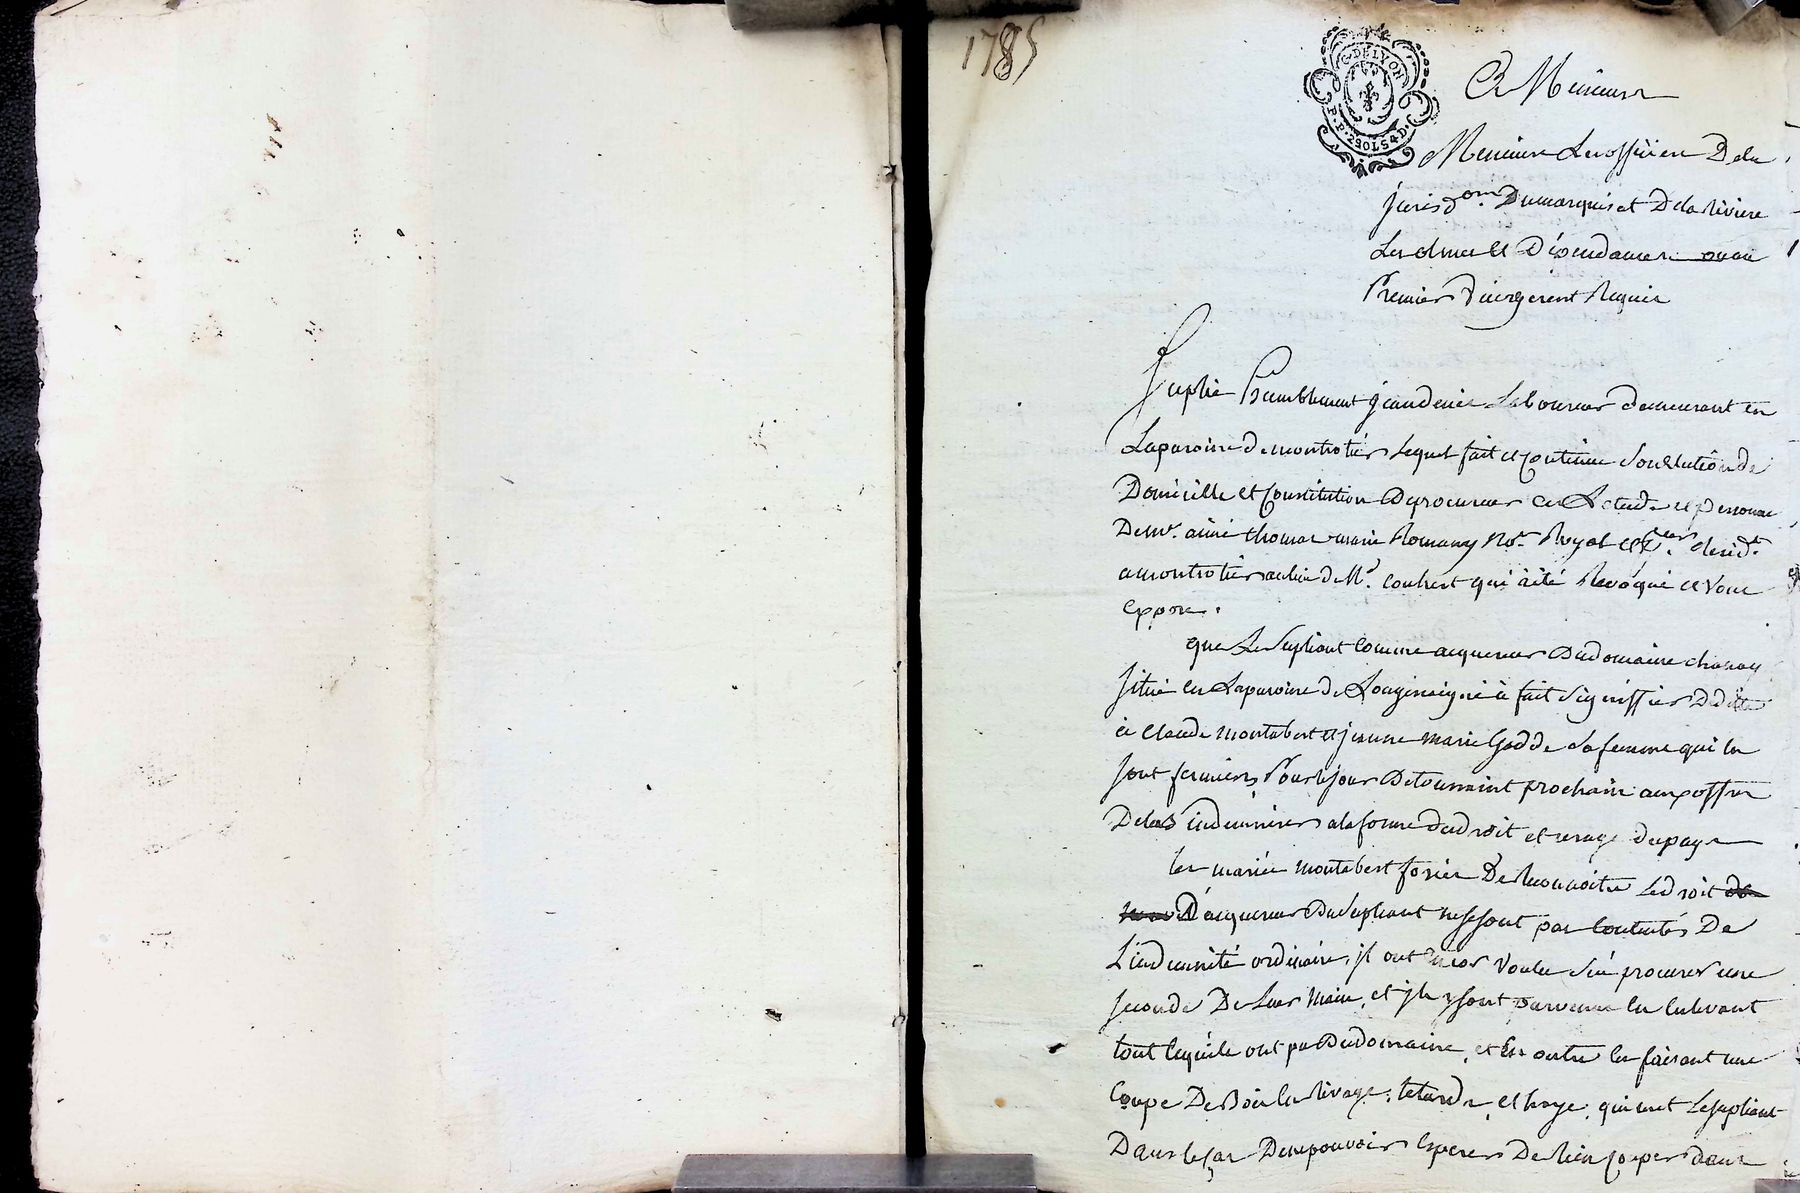 1785
G. DE LYON
P.P. 2SOLS4D.
A Messieurs
Messieurs Les officiers De la
jurisd.on Du marquisat De la riviere
Les olmes et Dépendances ou au
Premier Diceux gerent Requis
Suplie humblement jean denis Laboureur demeurant en
La paroisse de montrotier Lequel fait et continue son Election de
Domicille et Constitution De procureur en L'etude et personne
De me. aimé thomas marie Romany no.re Royal et p.reur resid.t
a montrotier au lieu de Me. couhert qui à été Revoqué et vous
expose.
que Le supliant comme acquereur Du domaine chanay
situé en La paroisse de Longessaigne à fait signiffier
à claude montabert et jeanne marie Godde sa femme qui en
sont fermiers Pour le jour De toussaint prochain aux offres
De les indemniser a la forme du droit et usage du pays
les mariés montabert forcés De Reconnoitre Le droit
D'acquereur Du supliant ne se sont pas contentés De
L'indemnité ordinaire, jls ont voulu s'en procurer une
seconde De Leurs mains, et jls y sont parvenus en enlevant
tout ce qu'ils ont pu Du domaine, et En outre en faisant une
Coupe De Bois en rivage, tetards, et haye, qui met Le supliant
Dans le cas De ne pouvoir esperer De rien couper dans